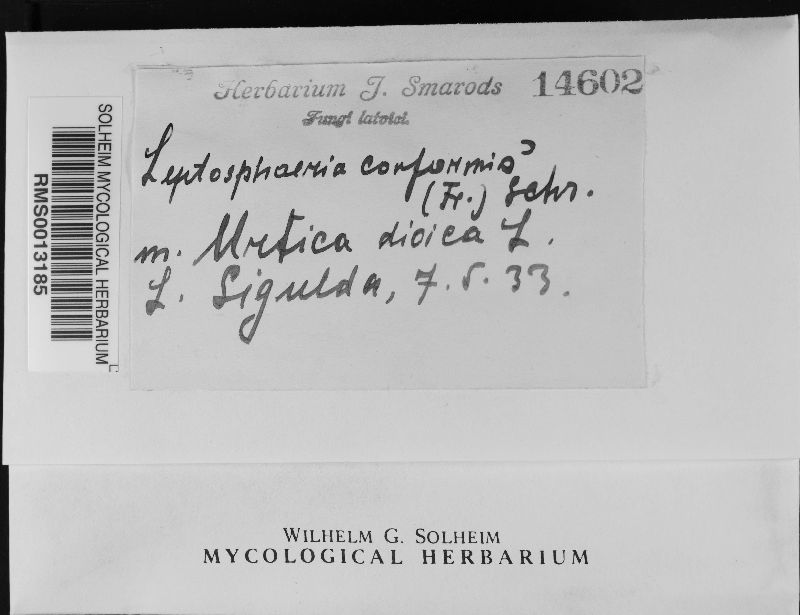 Herbarium J. Smarods 14602
Fungi latvici.
Leptosphaeria conformis
(Fr.) Schr.
m. Urtica dioica L.
L. Sigulda, 7.5.33.
SOLHEIM MYCOLOGICAL HERBARIUM
RMS0013185
WILHELM G. SOLHEIM
MYCOLOGICAL HERBARIUM